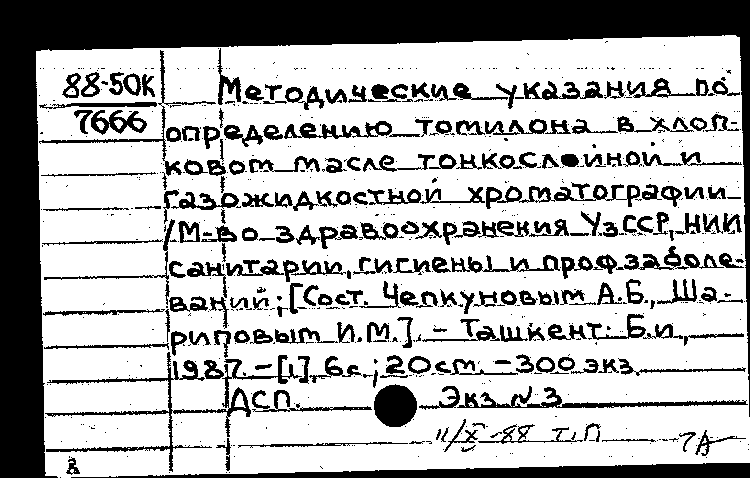 88-50К
7666
Методические указания по
определению томилона в хлоп-
ковом масле тонкослойной и
газожидкостной хроматографии
/М-во здравоохранения УзССР, НИИ
санитарии, гигиены и профзаболе-
ваний; [Сост. Чепкуновым А.Б., Ша-
риповым И.М.]. - Ташкент: Б.и.,
1987. - [1], 6с.; 20см. - 300 экз.
ДСП. Экз №3
11/X-88 Т.П